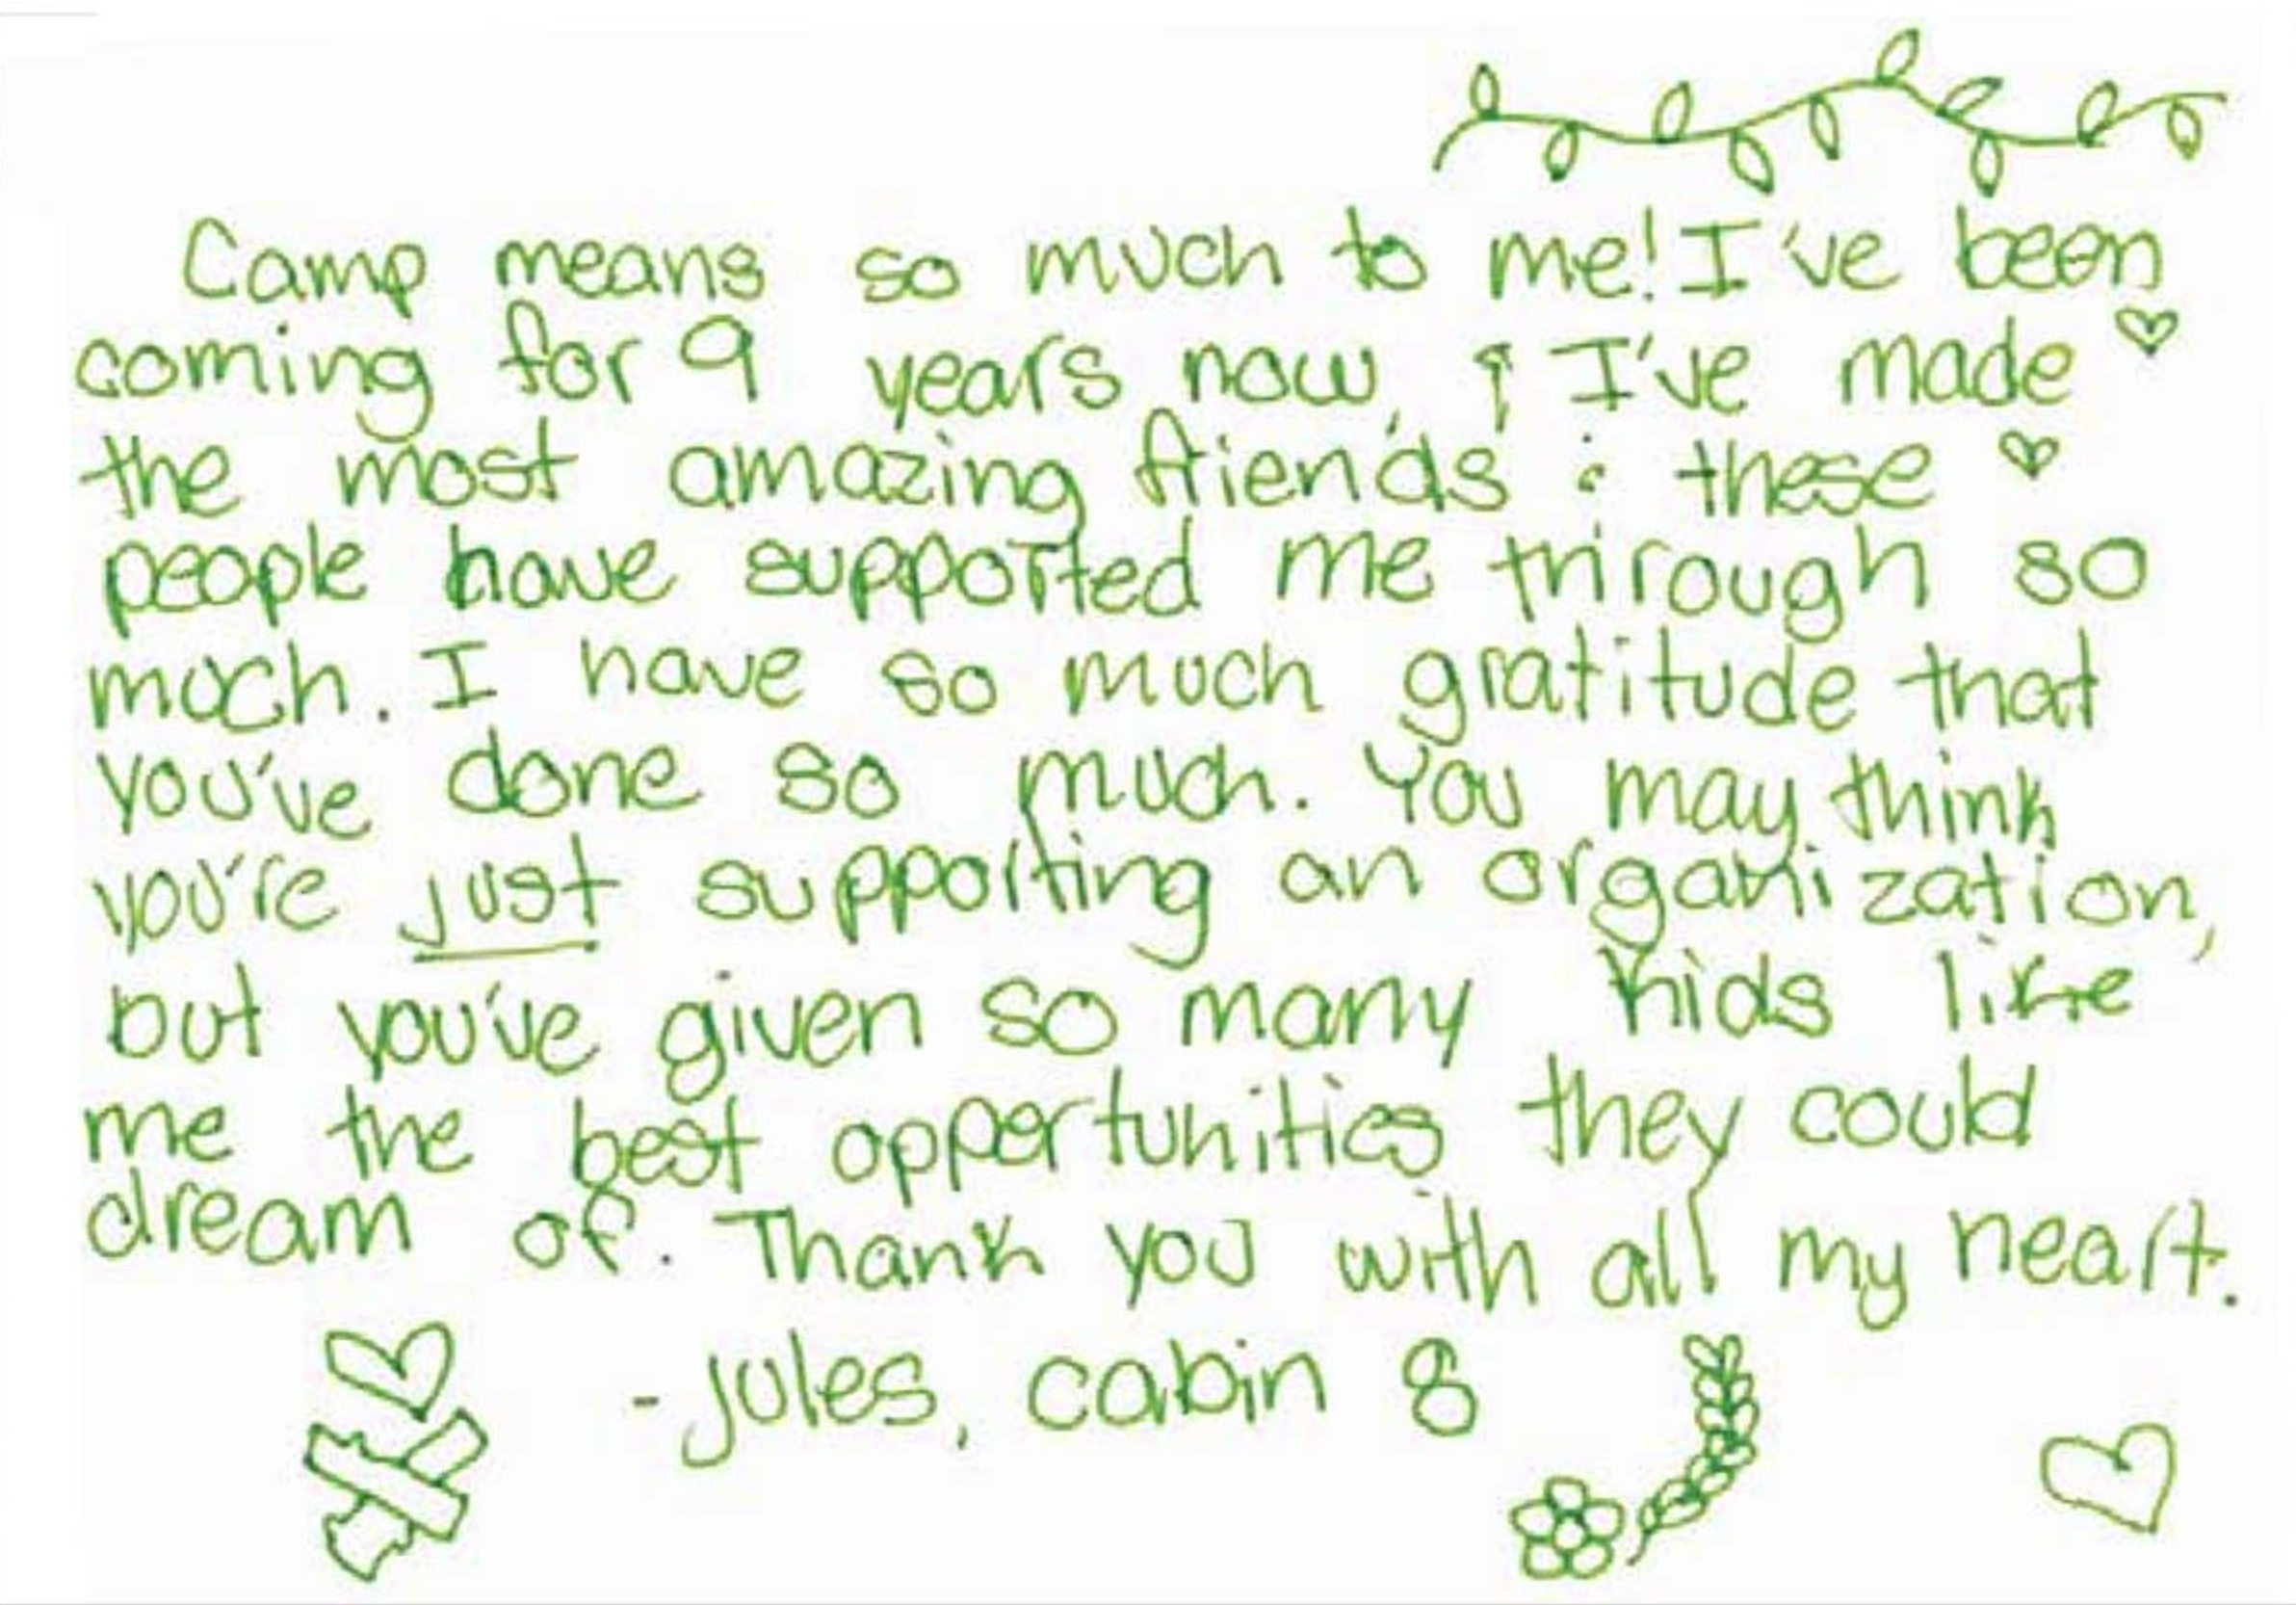 Camp means so much to me! I've been
coming for 9 years now, & I've made
the most amazing friends : these
people have supported me through so
much. I have so much gratitude that
you've done so much. You may think
you're just supporting an organization,
but you've given so many kids like
me the best opportunities they could
dream of. Thank you with all my heart.
- Jules, cabin 8